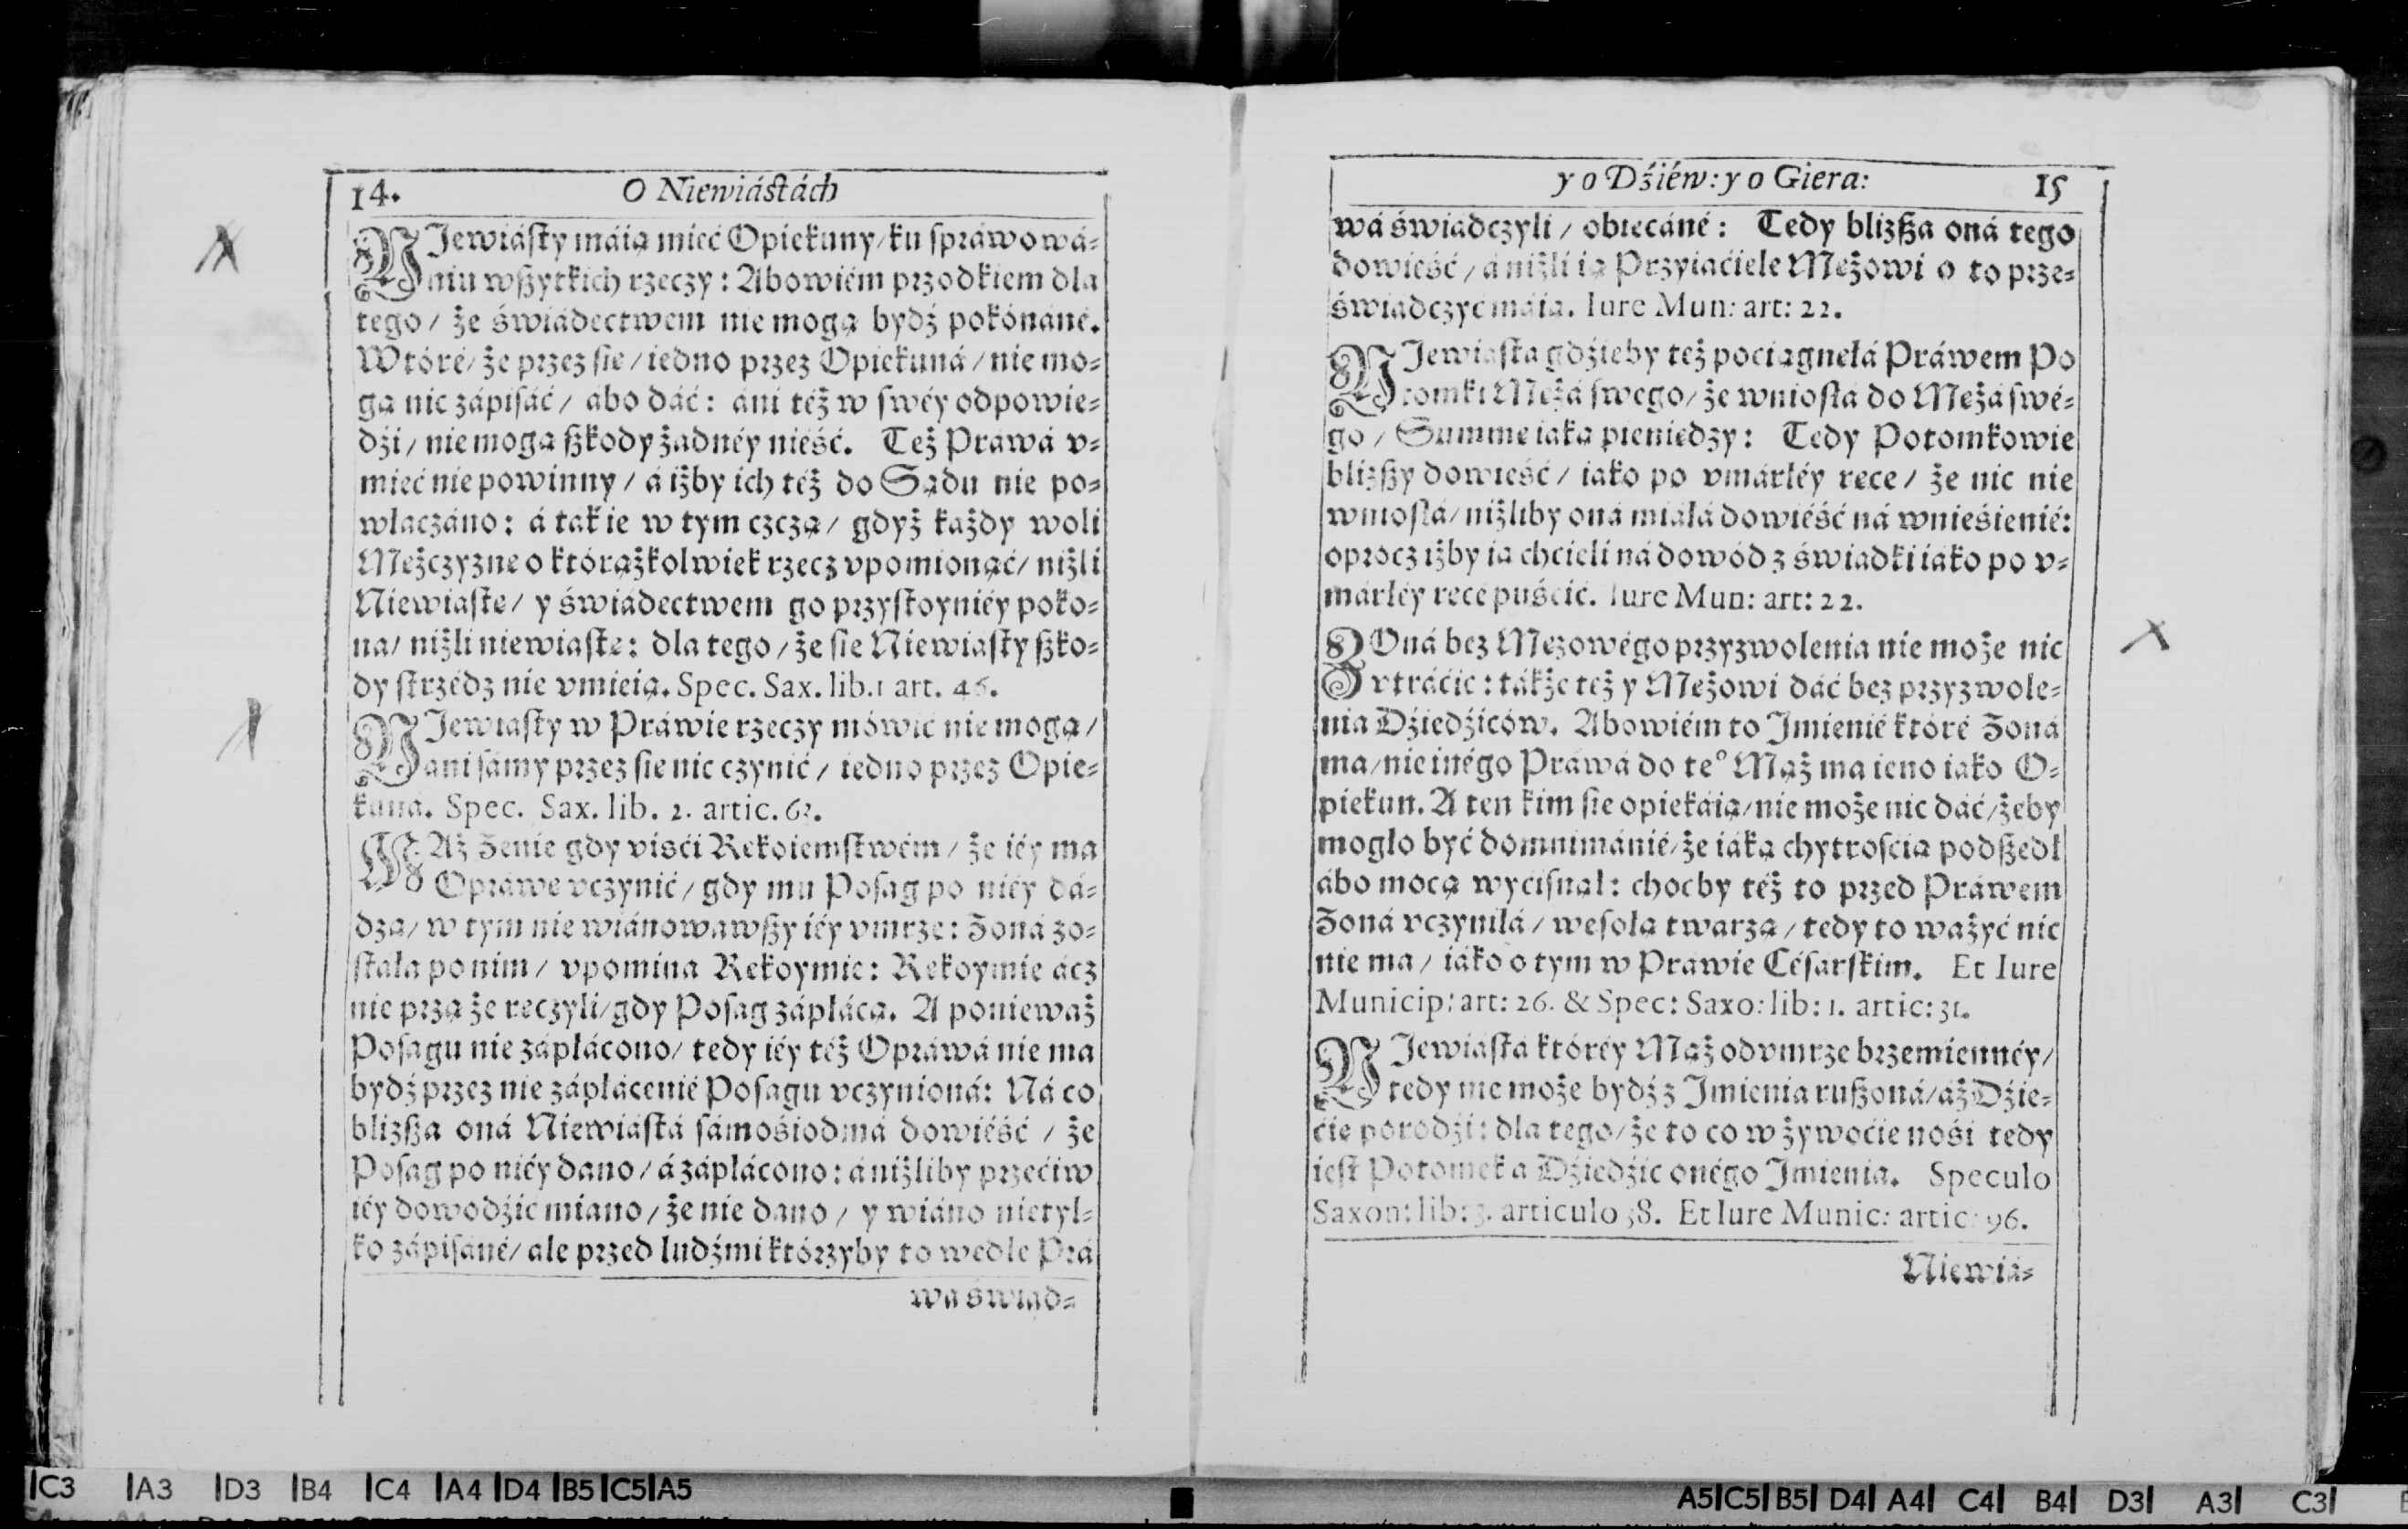 14. O Niewiáſtách
NJewiáſty máią mieć Opiekuny/ ku ſpráwowá⸗
niu wßytkich rzeczy: Abowiém przodkiem dla
tego/ że świádectwem nie mogą bydź pokónáné.
Wtóré/ że przez ſie/ iedno przez Opiekuná/ nie mo⸗
gą nic zápiſáć/ ábo dáć: áni téż w ſwéy odpowie⸗
dźi/ nie mogą ßkody żadnéy niéść. Też Práwá v⸗
mieć nie powinny/ á iżby ich téż do Sądu nie po⸗
wlaczáno: á tak ie w tym czczą/ gdyż każdy woli
Mężczyznę o którążkolwiek rzecz vpomionąć/ niżli
Niewiaſtę/ y świádectwem go przyſtoyniéy poko⸗
na/ niżli niewiaſtę: dla tego/ że ſie Niewiaſty ßko⸗
dy ſtrzédz nie vmieią. Spec. Sax. lib.1 art. 46.
NJewiaſty w Práwie rzeczy mówić nie mogą/
áni ſámy przez ſie nic czynić/ iedno przez Opie⸗
kuná. Spec. Sax. lib. 2. artic. 63.
MAż Żenie gdy viśći Rękoiemſtwém/ że iéy ma
Opráwę vczynić/ gdy mu Poſag po niéy dá⸗
dzą/ w tym nie wiánowawßy iéy vmrze: Żoná zo⸗
ſtała po nim/ vpomina Rękoymie: Rękoymie ácz
nie przą że ręczyli/ gdy Poſag zápłácą. A ponieważ
Poſagu nie zápłácono/ tedy iéy téż Opráwá nie ma
bydź przez nie zápłácenié Poſagu vczynioná: Ná co
bliżßa oná Niewiáſtá ſámośiodmá dowiéść / że
Poſag po niéy dano/ á zápłácono: á niżliby przećiw
iéy dowodźić miano/ że nie dano/ y wiáno nietyl⸗
ko zápiſané/ ale przed ludźmi którzyby to wedle Prá
wá świad⸗
y o Dźiéw: y o Giera: 15
wá świadczyli/ obiecáné: Tedy bliżßa oná tego
dowieść/ á niżli ią Przyiaćiele Mężowi o to prze⸗
świadczyć máią. Iure Mun: art: 22.
NJewiaſta gdźieby też pociągnęlá Práwem Po
tomki Mężá ſwego/ że wnioſłá do Mężá ſwé⸗
go/ Summę iaką pieniędzy: Tedy Potomkowie
bliżßy dowieść/ iáko po vmárléy ręce/ że nic nie
wnioſłá/ niżliby oná miałá dowiéść ná wnieśienié:
oprócz iżby ią chcieli ná dowód z świadki iáko po v⸗
márléy ręce puśćić. Iure Mun: art: 22.
ŻOná bez Mężowégo przyzwolenia nie może nic
vtráćić: tákże też y Mężowi dáć bez przyzwole⸗
nia Dźiedźiców. Abowiém to Jmienié któré Żoná
ma/ nie inégo Práwá do te° Mąż ma ieno iako O⸗
piekun. A ten kim ſie opiekáią/ nie może nic dáć/ żeby
mogło być domnimánié/ że iáką chytroſcią podßedł
ábo mocą wyciſnął: choćby téż to przed Práwem
Żoná vczyniłá/ weſołą twarzą/ tedy to ważyć nic
nie ma/ iáko o tym w Práwie Céſarſkim. Et Iure
Municip: art: 26. & Spec: Saxo: lib: 1. artic: 31.
NJewiáſtá któréy Mąż odvmrze brzemiennéy/
tedy nie może bydź z Jmienia rußoná/ áż Dźie⸗
ćię porodźi: dla tego/ że to co w żywoćie nośi tedy
ieſt Potomek a Dźiedźic onégo Jmienia. Speculo
Saxon: lib: 3. articulo 38. Et Iure Munic: artic: 96.
Niewiá⸗
C3 A3 D3 B4 C4 A4 D4 B5 C5 A5
A5 C5 B5 D4 A4 C4 B4 D3 A3 C3